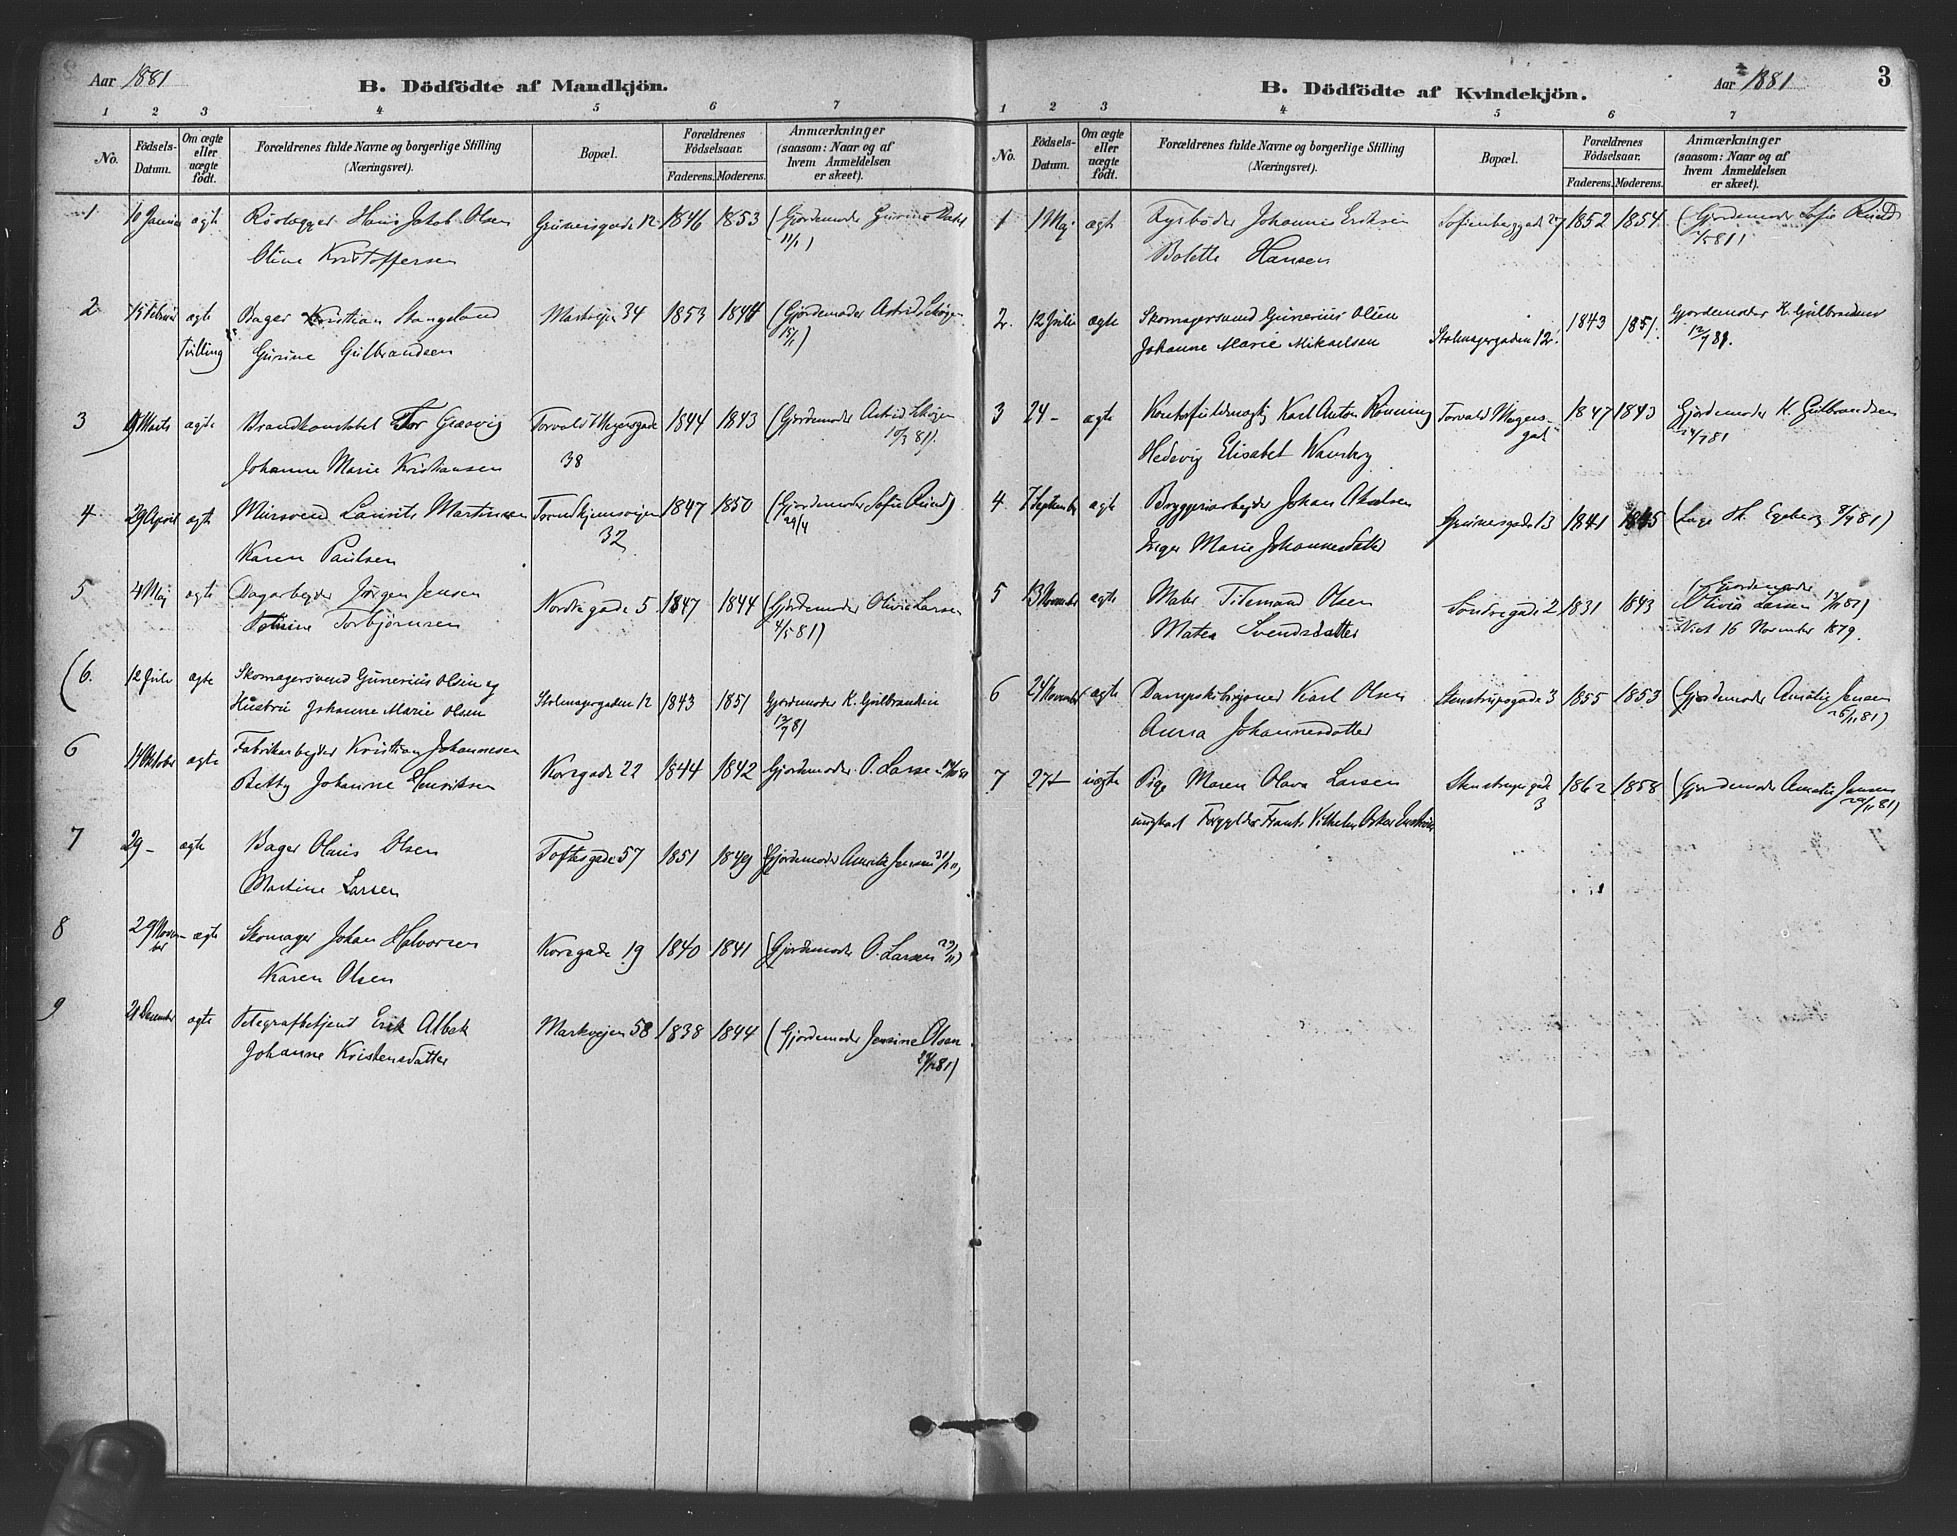 Aar 1881
B. Dödfödte af Mandkjön.
1 2 3 4 5 6 7
No.
Födsels-Datum.
Om ægte eller uægte födt.
Forældrenes fulde Navne og borgerlige Stilling
(Næringsvei).
Bopæl.
Forældrenes Födselsaar.
Faderens. Moderens.
Anmærkninger
(saasom: Naar og af
hvem Anmeldelsen
er skeet).
1 10 Januar ægte Hans Jakob Olsen Grünersgade 12 1846 1853 (Gjordemoder Gurine
Oline Kristoffersen 11/1)
2 15 Februar ægte Bager Kristian Stangeland Markvejen 34 1853 1844 (Gjordemoder Astrid Skogen
Tvilling Gurine Gulbrandsen
3 9 Marts ægte Brandkonstabel Tor Graavig Torvald Meyersgade 1844 1843 (Gjordemoder Astrid Skogen
Johanne Marie Kristiansen 38 10/3 81).
4 29 April ægte Mursvend Laurits Martinsen Trondhjemsvejen 1847 1850 (Gjordemoder Sofie
Karen Paulsen 32 29/4
5 4 Maj ægte Dagarbejder Jörgen Jensen Nordregade 5 1847 1844 (Gjordemoder Olivia Larsen
Torbjörnsen 4/5 81)
(6. 12 Juli ægte Skomagersvend Gunerius Olsen og
Hustru Johanne Marie Olsen Stolmagergaden 12 1843 1851 Gjordemoder K. Gulbrandsen
12/7 81
6 Oktober ægte Fabrikarbejder Kristian Johannesen
Betty Johanne Henriksen Korsgade 22 1844 1842 Gjordemoder O. Larsen
7 29 - ægte Bager Olaus Olsen Toftesgade 57 1851 1849 Gjordemoder Amalie Jensen
Martine Larsen
8 29 November ægte Skomager Johan Halvorsen Korsgade 19 1840 1841 (Gjordemoder O. Larsen 29/11)
Karen Olsen
9 21 December ægte Telegrafbetjent Erik Albek Markvejen 58 1838 1844 (Gjordemoder Jensine Olsen
Johanne Kristensdatter
Aar 1881 3
B. Dödfödte af Kvindekjön.
1 2 3 4 5 6 7
No.
Födsels-Datum.
Om ægte eller uægte födt.
Forældrenes fulde Navne og borgerlige Stilling
(Næringsvei).
Bopæl.
Forældrenes Födselsaar.
Faderens. Moderens.
Anmærkninger
(saasom: Naar og af
hvem Anmeldelsen
er skeet).
1 1 Maj ægte Fyrböder Johannes Eriksen Sofienberggade 27 1852 1854 (Gjordemoder Sofie
Bolette Hansen
2. 12 Juli ægte Skomagersvend Gunerius Olsen 1843 1851. Gjordemoder K. Gulbrandsen
Johanne Marie Mikaelsen Stolmagergaden 12. 12/7 81.
3 24 - ægte Kontorfuldmægtig Karl Anton Rönning Torvald Meyers- 1847 1843 Gjordemoder K. Gulbrandsen
Hedevig Elisabet gade 24/7 81
4 7 September ægte Bryggeriarbejder Johan Axelsen Grünersgade 13 1841 1845 (Læge Th. Egeberg 8/9 81)
Inger Marie Johannesdatter
5 13 November ægte Maler Tidemand Olsen Söndregade 2 1831 1843 (Gjordemoder
Matea Svendsdatter Olivia Larsen
Viet 16 November 1879.
6 24 November ægte Karl Olsen Stenstrupsgade 3 1855 1853 (Gjordemoder Amalie Jensen
Anna Johannesdatter
7 27 - uægte Pige Maren Olava Larsen Stenstrupsgade 1862 1858 (Gjordemoder Amalie Jensen
ungkarl Forgylder Frants Vilhelm Oskar 3